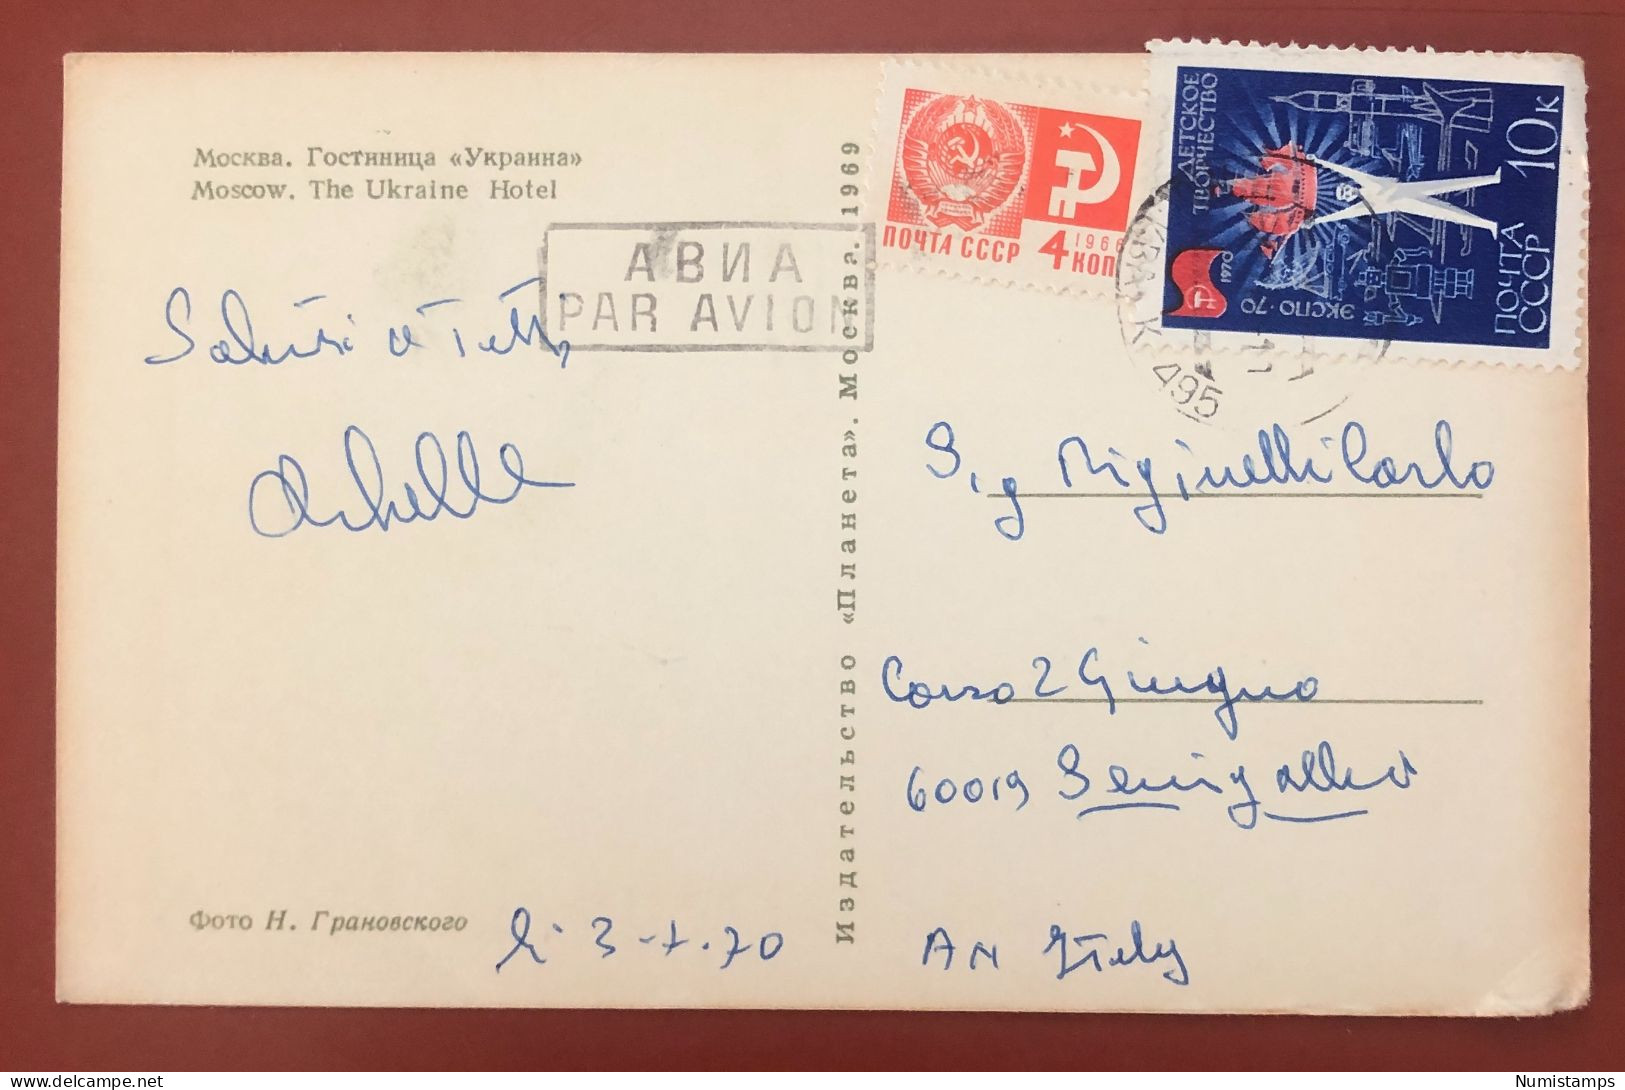 Москва. Гостиница «Украина»
Moscow. The Ukraine Hotel
АВИА
PAR AVION
Saluti a Tutti
Achille
Фото Н. Грановского
li 3-7-70
Издательство «Планета». Москва. 1969
ПОЧТА СССР
4 1966
КОП
ДЕТСКОЕ
ТВОРЧЕСТВО
1970
ЭКСПО·70
10 К
ПОЧТА
СССР
МОСКВА
К 495
Sig Riginelli Carlo
Corso 2 Giugno
60019 Senigallia
AN Italy
Numistamps